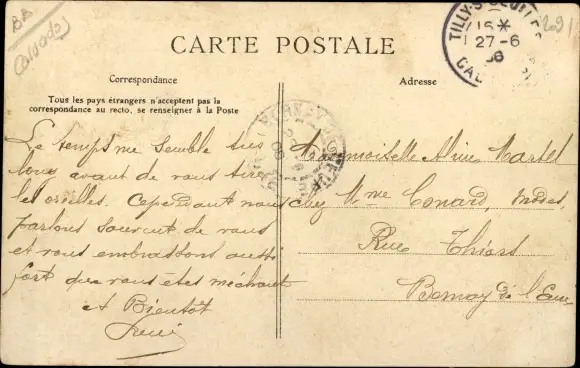 BB
Calvados
CARTE POSTALE
Correspondance
Adresse
Tous les pays étrangers n'acceptent pas la
correspondance au recto, se renseigner à la Poste
TILLY-S
15*
27-6
CAL
Le temps me semble
avant de vous tirer
les oreilles. Cependant nous
parlons souvent de vous
et vous embrassons aussi
fort que vous êtes méchante
et Bientôt
Mademoiselle Aline Martel
chez Mme Conard, modes,
Rue Thiers
Bernay de l'Eure